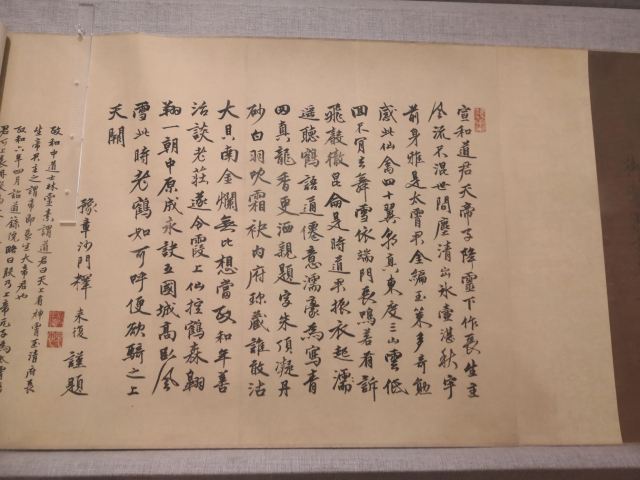 宣和道君天帝子降靈下作長生主
風流不混世間塵清出氷壺湛秋宇
前身雅是太霄君金編玉策多奇勳
感此仙禽四十翼真東度三山雲低
回不肯去舞雪依端門長鳴若有訴
飛聲徹崑侖是時道君振衣起
遥聽鶴語道僊意濡豪為寫青
田真龍香更洒親題字朱頂凝丹
砂白羽吹霜袂内府珎藏誰敢沽
大貝南金爛無比想當政和年善
治談老莊遂令霞上仙控鶴森翱
翔一朝中原成永訣五國城高臥風
雪此時老鶴如可呼便欲騎之上
天闕
豫章沙門釋 来復 謹題
政和中道士林靈素謂道君曰天上有神霄玉清府長
生帝君主之謂帝即長生大帝君也
政和六年四月詔道籙院略曰朕乃上帝元子為太霄帝